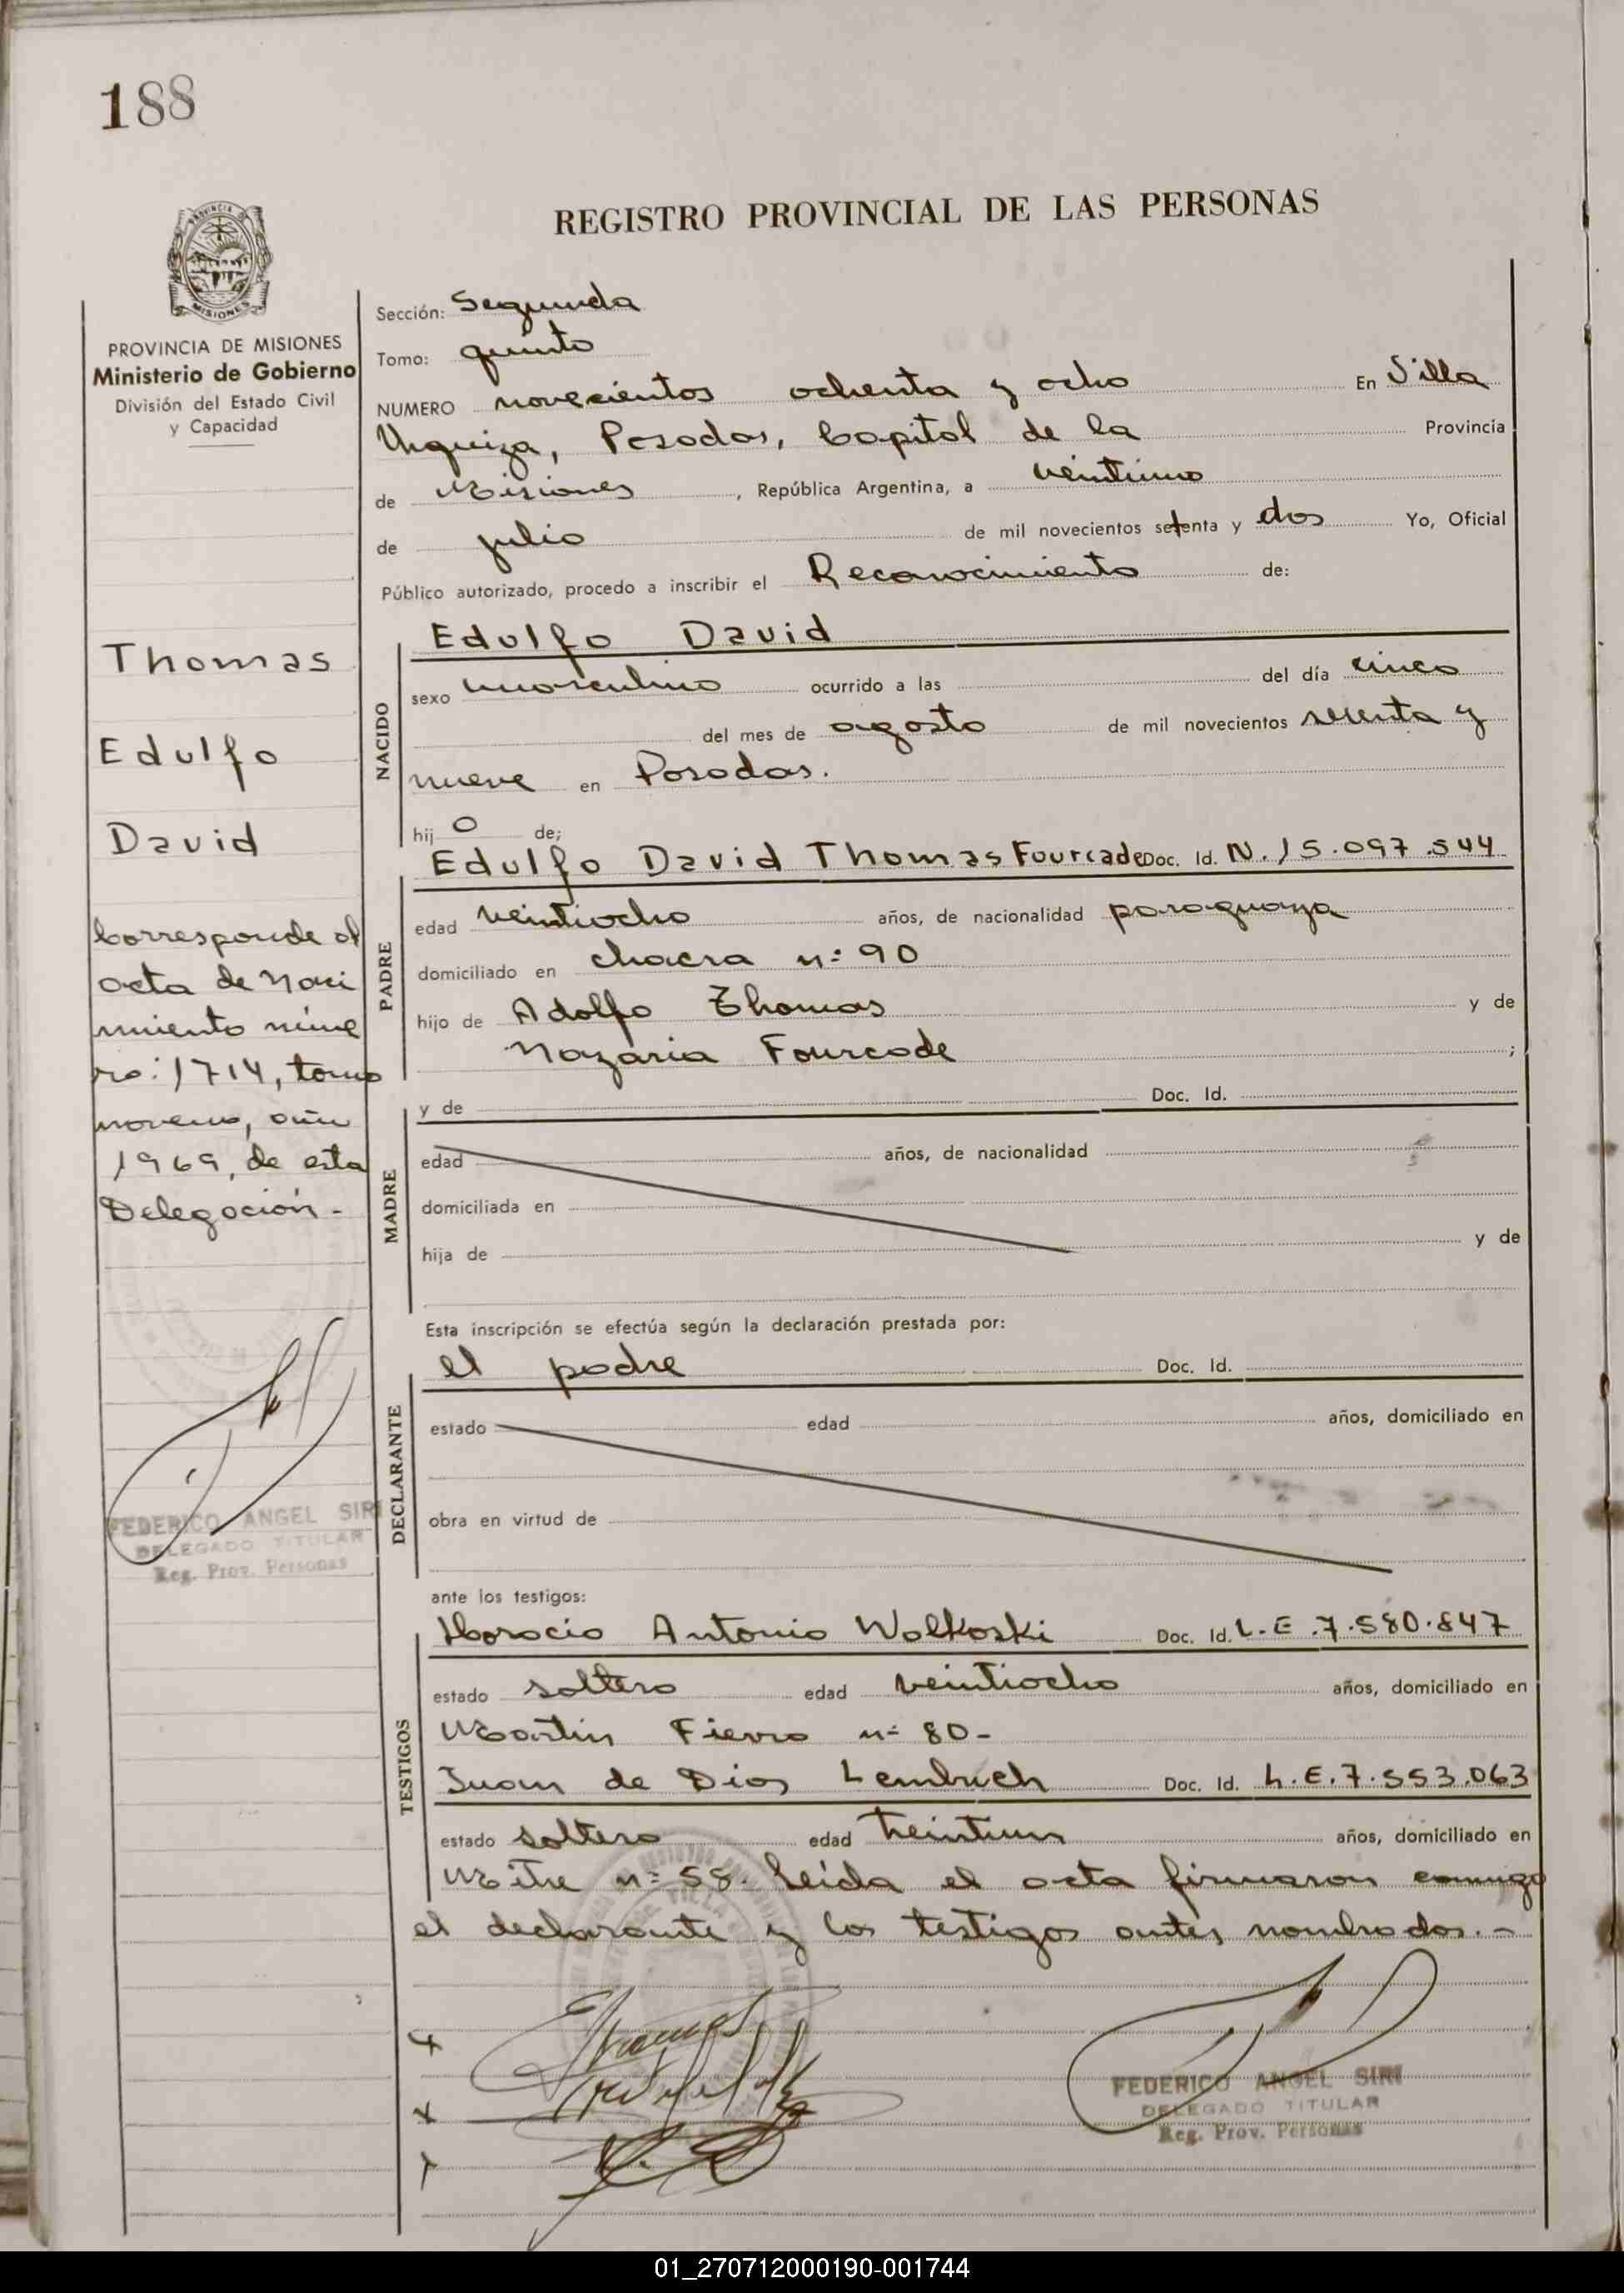 188
REGISTRO PROVINCIAL DE LAS PERSONAS
PROVINCIA DE MISIONES
Ministerio de Gobierno
División del Estado Civil
y Capacidad
Thomas
Edulfo
David
Corresponde al
acta de Naci
miento núme
ro: 1714, tomo
noveno, año
1969, de esta
Delegación.-
FEDERICO ANGEL SIRI
DELEGADO TITULAR
Reg. Prov. Personas
Sección: Segunda
Tomo: quinto
NUMERO novecientos ochenta y ocho En Villa
Urquiza, Posadas, Capital de la Provincia
de Misiones, República Argentina, a veintiuno
de julio de mil novecientos setenta y dos Yo, Oficial
Público autorizado, procedo a inscribir el Reconocimiento de:
NACIDO
Edulfo David
sexo masculino ocurrido a las del día cinco
del mes de agosto de mil novecientos sesenta y
nueve en Posadas.
hij o de;
PADRE
Edulfo David Thomas Fourcade Doc. Id. N. 15.097.544
edad veintiocho años, de nacionalidad paraguaya
domiciliado en chacra n: 90
hijo de Adolfo Thomas y de
Nazaria Fourcade ;
MADRE
y de Doc. Id.
edad años, de nacionalidad
domiciliada en
hija de y de
Esta inscripción se efectúa según la declaración prestada por:
DECLARANTE
el padre Doc. Id.
estado edad años, domiciliado en
obra en virtud de
ante los testigos:
TESTIGOS
Horacio Antonio Wolkoski Doc. Id. L.E.7.580.847
estado soltero edad veintiocho años, domiciliado en
Martin Fierro n= 80-
Juan de Dios Lembrich Doc. Id. L.E.7.553.063
estado soltero edad treintiun años, domiciliado en
Mitre n= 58. Leida el acta firmaron conmigo
el declarante y los testigos antes nombrados.-
FEDERICO ANGEL SIRI
DELEGADO TITULAR
Reg. Prov. Personas
01_270712000190-001744